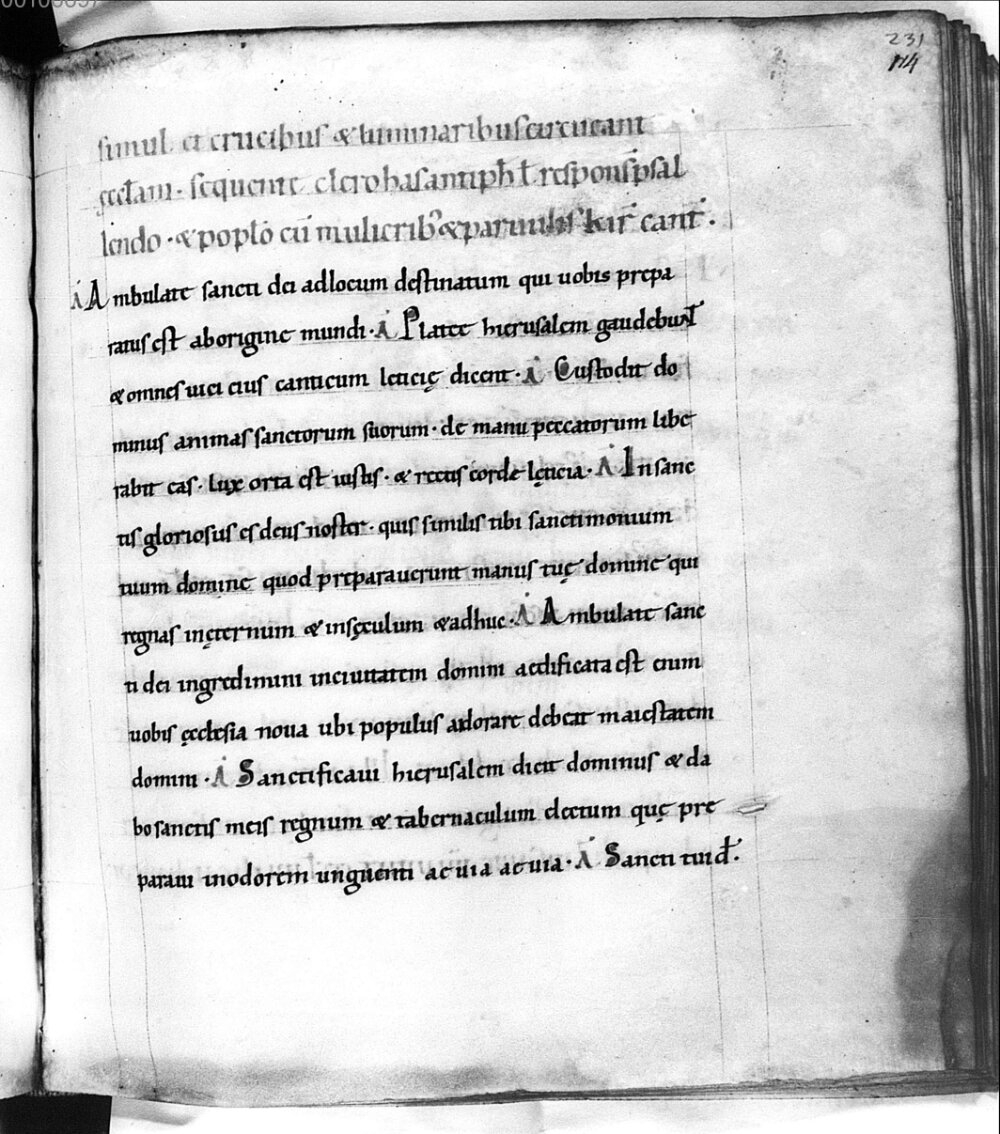 231
114
simul et crucibus & luminaribus circueant
ęccl̄am · sequente clero has antiph̄ ł respons̄ psal
lendo · & popl̄o cū mulierib; & paruulis kir̄ cant̄ .
A Ambulate sancti dei ad locum destinatum qui uobis prepa
ratus est aborigine mundi · A Plateę hierusalem gaudebunt
& omnes uici eius canticum leticię dicent · A Custodit do
minus animas sanctorum suorum · de manu peccatorum libe
rabit eas · lux orta est iustis · & rectis corde lęticia · A In sanc
tis gloriosus es deus noster · quis similis tibi sanctimonium
tuum domine quod preparauerunt manus tuę domine qui
regnas in ęternum & in sęculum & adhuc · A Ambulate sanc
ti dei ingredimini in ciuitatem domini aedificata est enim
uobis ęcclesia noua ubi populus adorare debeat maiestatem
domini · A Sanctificaui hierusalem dicit dominus & da
bo sanctis meis regnum & tabernaculum electum quę pre
paraui inodorem unguenti aeuia aeuia · A Sancti tui d̄ .